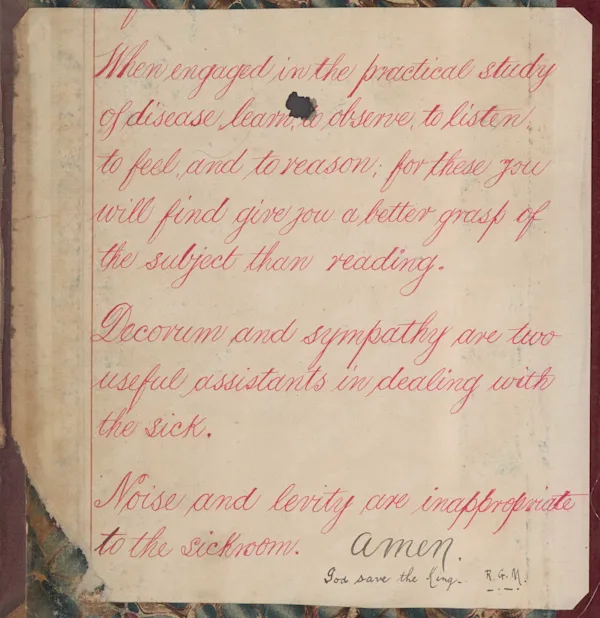 When engaged in the practical study
of disease, learn, to observe, to listen,
to feel, and to reason; for these you
will find give you a better grasp of
the subject than reading.
Decorum and sympathy are two
useful assistants in dealing with
the sick.
Noise and levity are inappropriate
to the sickroom. Amen.
God save the King. R.G.M.